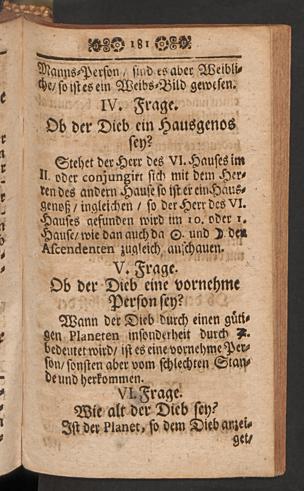 181
Manns-Person / sind es aber Weibli-
che / so ist es ein Weibs-Bild gewesen.
IV. Frage.
Ob der Dieb ein Hausgenos
sey?
Stehet der Herr des VI. Hauses im
II. oder conjungirt sich mit dem Her-
ren des andern Hause so ist er ein Haus-
genoß / ingleichen / so der Herr des VI.
Hauses gefunden wird im 10. oder 1.
Hause / wie dan auch da ☉. und ☽ den
Ascendenten zugleich anschauen.
V. Frage.
Ob der Dieb eine vornehme
Person sey?
Wann der Dieb durch einen güti-
gen Planeten insonderheit durch ♃.
bedeutet wird / ist es eine vornehme Per-
son / sonsten aber vom schlechten Stan-
de und herkommen.
VI. Frage.
Wie alt der Dieb sey?
Ist der Planet, so dem Dieb anzei-
get /